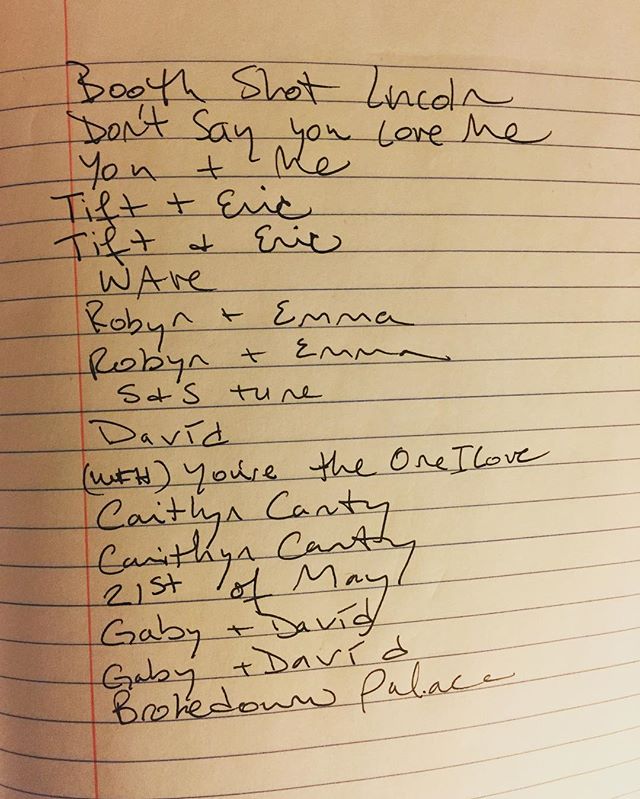 Booth Shot Lincoln
Don't Say you Love Me
You + Me
Tift + Eric
Tift + Eric
WAve
Robyn + Emma
Robyn + Emma
S+S tune
David
You're the One I Love
Caitlyn Canty
Canithyn Canty
21st of May
Gaby + David
Gaby + David
Brokedown Palace